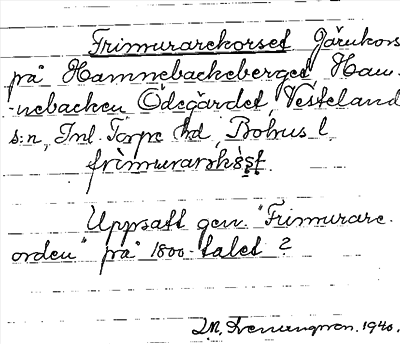 Frimurarekorset Järnkors
på Hamnebackeberget Ham-
nebacken Ödegärdet, Västeland
s:n, Inl. Torpe hd, Bohus l.
frìmurarskɔst
Uppsatt gen. "Frimurare-
orden" på 1800-talet ?
1940.